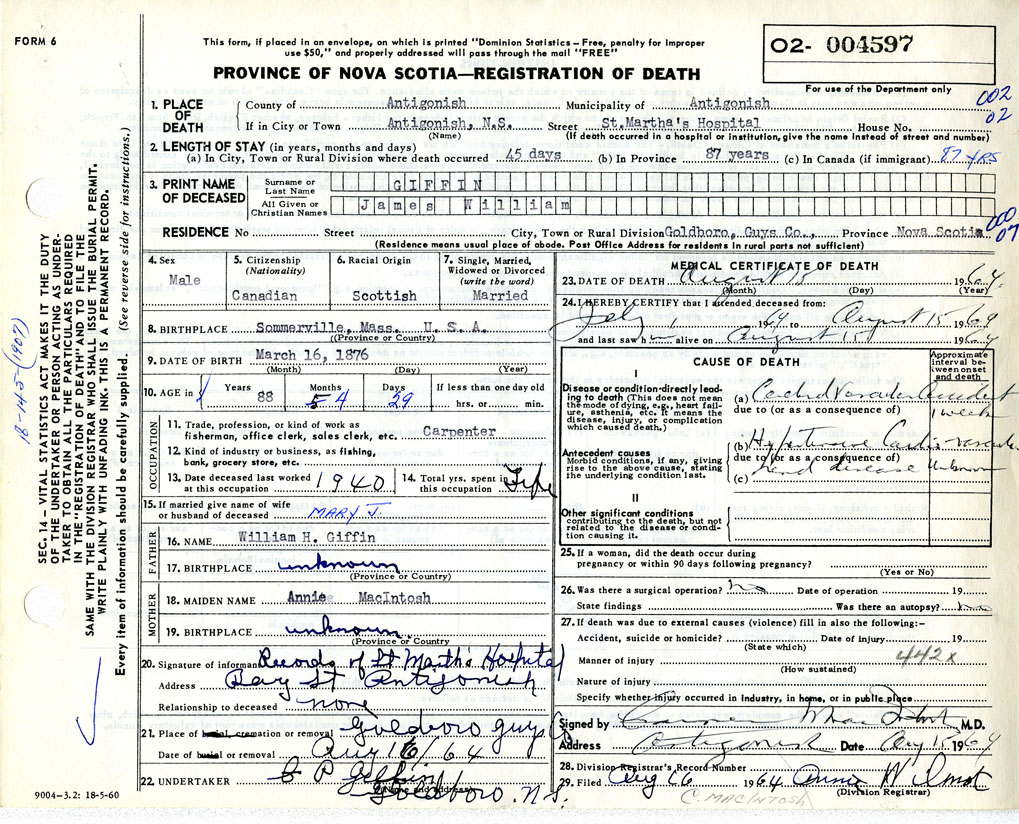 FORM 6
This form, if placed in an envelope, on which is printed "Dominion Statistics – Free, penalty for improper
use $50," and properly addressed will pass through the mail "FREE"
PROVINCE OF NOVA SCOTIA—REGISTRATION OF DEATH
O2- 004597
For use of the Department only
002
02
1. PLACE OF DEATH
County of Antigonish Municipality of Antigonish
If in City or Town Antigonish, N.S. Street St.Martha's Hospital House No.
(Name) (If death occurred in a hospital or institution, give the name instead of street and number)
2. LENGTH OF STAY (in years, months and days)
(a) In City, Town or Rural Division where death occurred 45 days (b) In Province 87 years (c) In Canada (if immigrant) 87 yrs
3. PRINT NAME OF DECEASED
Surname or Last Name GIFFIN
All Given or Christian Names James William
000
07
RESIDENCE No Street City, Town or Rural Division Goldboro, Guys Co., Province Nova Scotia
(Residence means usual place of abode. Post Office Address for residents in rural parts not sufficient)
4. Sex Male
5. Citizenship (Nationality) Canadian
6. Racial Origin Scottish
7. Single, Married, Widowed or Divorced (write the word) Married
8. BIRTHPLACE Sommerville, Mass. U.S.A.
(Province or Country)
9. DATE OF BIRTH March 16, 1876
(Month) (Day) (Year)
10. AGE in Years 88 Months 5 4 Days 29 If less than one day old hrs. or min.
OCCUPATION
11. Trade, profession, or kind of work as fisherman, office clerk, sales clerk, etc. Carpenter
12. Kind of industry or business, as fishing, bank, grocery store, etc.
13. Date deceased last worked at this occupation 1940 14. Total yrs. spent in this occupation Life
15. If married give name of wife or husband of deceased MARY J.
FATHER
16. NAME William H. Giffin
17. BIRTHPLACE unknown
(Province or Country)
MOTHER
18. MAIDEN NAME Annie MacIntosh
19. BIRTHPLACE unknown
(Province or Country
20. Signature of informant Records of St Martha's Hospital
Address Bay St Antigonish
Relationship to deceased none
21. Place of burial, cremation or removal Goldboro Guys Co
Date of burial or removal Aug 16/64
22. UNDERTAKER C P Giffin
(Name and address)
Goldboro. N.S.
9004-3.2: 18-5-60
MEDICAL CERTIFICATE OF DEATH
23. DATE OF DEATH August 15 1964
(Month) (Day) (Year)
24. I HEREBY CERTIFY that I attended deceased from:
July 1 1964 to August 15 1964
and last saw him alive on August 15 1964
CAUSE OF DEATH
Approximate interval between onset and death
I
Disease or condition directly leading to death (This does not mean the mode of dying, e.g., heart failure, asthenia, etc. It means the disease, injury, or complication which caused death.)
(a) Cerebral Vascular Accident
due to (or as a consequence of) 1 week
Antecedent causes
Morbid conditions, if any, giving rise to the above cause, stating the underlying condition last.
(b) Hypertensive Cardio-vascular
due to (or as a consequence of)
renal disease unknown
(c)
II
Other significant conditions
contributing to the death, but not related to the disease or condition causing it.
25. If a woman, did the death occur during
pregnancy or within 90 days following pregnancy?
(Yes or No)
26. Was there a surgical operation? no Date of operation 19
State findings Was there an autopsy? no
27. If death was due to external causes (violence) fill in also the following:-
Accident, suicide or homicide? Date of injury 19
(State which)
Manner of injury 442x
(How sustained)
Nature of injury
Specify whether injury occurred in Industry, in home, or in public place
Signed by M.D.
Address Antigonish Date Aug 15 1964
28. Division Registrar's Record Number
29. Filed Aug 26 1964 Annie
(Division Registrar)
C. MACINTOSH
SEC. 14 – VITAL STATISTICS ACT MAKES IT THE DUTY
OF THE UNDERTAKER OR PERSON ACTING AS UNDER-
TAKER TO OBTAIN ALL THE PARTICULARS REQUIRED
IN THE "REGISTRATION OF DEATH" AND TO FILE THE
SAME WITH THE DIVISION REGISTRAR WHO SHALL ISSUE THE BURIAL PERMIT.
WRITE PLAINLY WITH UNFADING INK. THIS IS A PERMANENT RECORD.
Every item of information should be carefully supplied. (See reverse side for instructions.)
18-145-(1907)